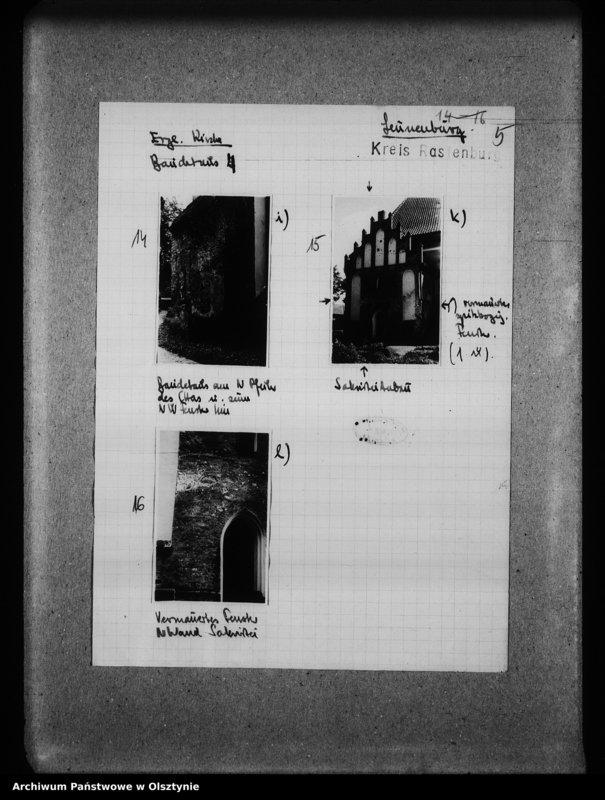 14-16
Leunenburg.
5
Kreis Rastenburg
Ergl. Kirche
Baudetails 4
14
i)
15
k)
vermauertes
spitzbogig.
Fenster.
(1 x).
Baudetails am N Pfeiler
des Chors u. zum
NW Fenster hin
Sakristeianbau
16
l)
Vermauertes Fenster
N Wand Sakristei
Archiwum Państwowe w Olsztynie